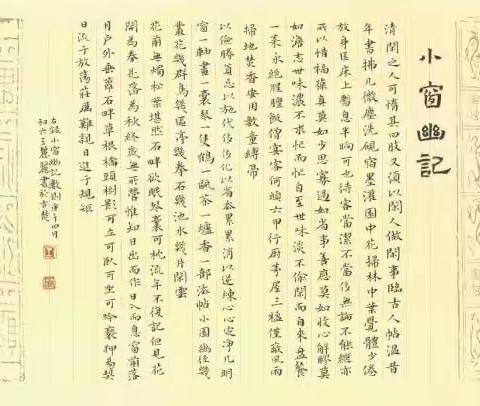 小窗幽記
清閑之人可惰其四肢又須以閑人做閑事臨古人帖溫昔
年書拂几微塵洗硯宿墨灌園中花掃林中葉覺體少倦
放身匡床上暫息半晌可也待客當潔不當侈無論不能繼亦
所以惜福 真莫如少思寡過 如省事善應莫如收心解醪莫
如澹志世味濃不求忙而忙自至世味淡不偷閑而自來盤餐
一菜永絕腥膻飯僧宴客何煩六甲行廚茅屋三楹僅蔽風雨
掃地焚香安用數童縛帚
以儉勝貧忘以施代侈侈化以省去累累消以逆煉心心定淨几明
窗一軸畫一囊琴一隻鶴一甌茶一爐香一部法帖小園幽徑幾
叢花幾群鳥幾區亭幾拳石幾池水幾片閑雲
花前無燭松葉堪然石畔欲眠琴囊可枕流年不復記但見花
開為春花落為秋終歲無所營惟知日出而作日入而息窗前落
月戶外垂蘿石畔草根橋頭樹影可立可臥可坐可吟褻狎易契
日流于放蕩莊厲難親日進于規矩
右錄小窗幽記數則庚子四月
初六 書於古楚